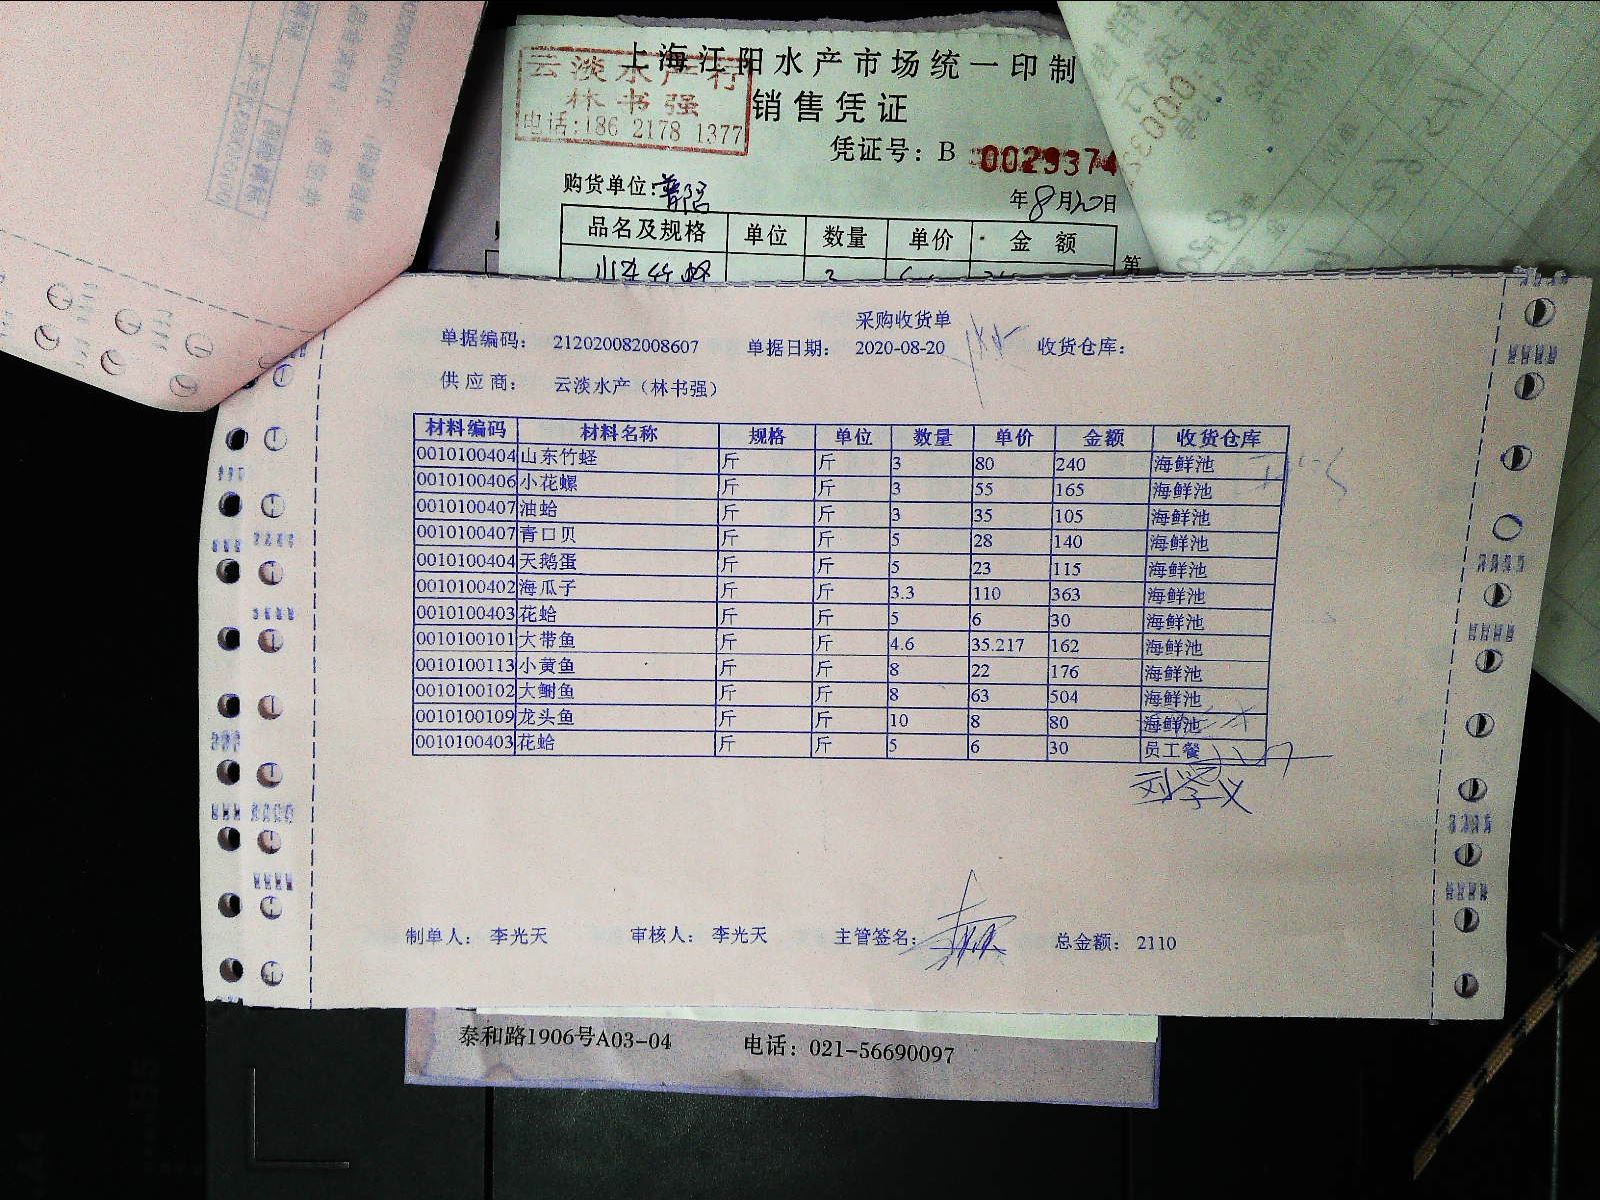 上海江阳水产市场统一印制
云淡水产行
林书强
电话:186 2178 1377
销售凭证
凭证号: B 0029374
购货单位:
年8月20日
品名及规格 单位 数量 单价 金额
第
采购收货单
单据编码: 212020082008607 单据日期: 2020-08-20 收货仓库:
供应商: 云淡水产（林书强）
材料编码 材料名称 规格 单位 数量 单价 金额 收货仓库
0010100404 山东竹蛏 斤 斤 3 80 240 海鲜池
0010100406 小花螺 斤 斤 3 55 165 海鲜池
0010100407 油蛤 斤 斤 3 35 105 海鲜池
0010100407 青口贝 斤 斤 5 28 140 海鲜池
0010100404 天鹅蛋 斤 斤 5 23 115 海鲜池
0010100402 海瓜子 斤 斤 3.3 110 363 海鲜池
0010100403 花蛤 斤 斤 5 6 30 海鲜池
0010100101 大带鱼 斤 斤 4.6 35.217 162 海鲜池
0010100113 小黄鱼 斤 斤 8 22 176 海鲜池
0010100102 大鲥鱼 斤 斤 8 63 504 海鲜池
0010100109 龙头鱼 斤 斤 10 8 80 海鲜池
0010100403 花蛤 斤 斤 5 6 30 员工餐
制单人: 李光天 审核人: 李光天 主管签名: 总金额: 2110
泰和路1906号A03-04 电话: 021-56690097